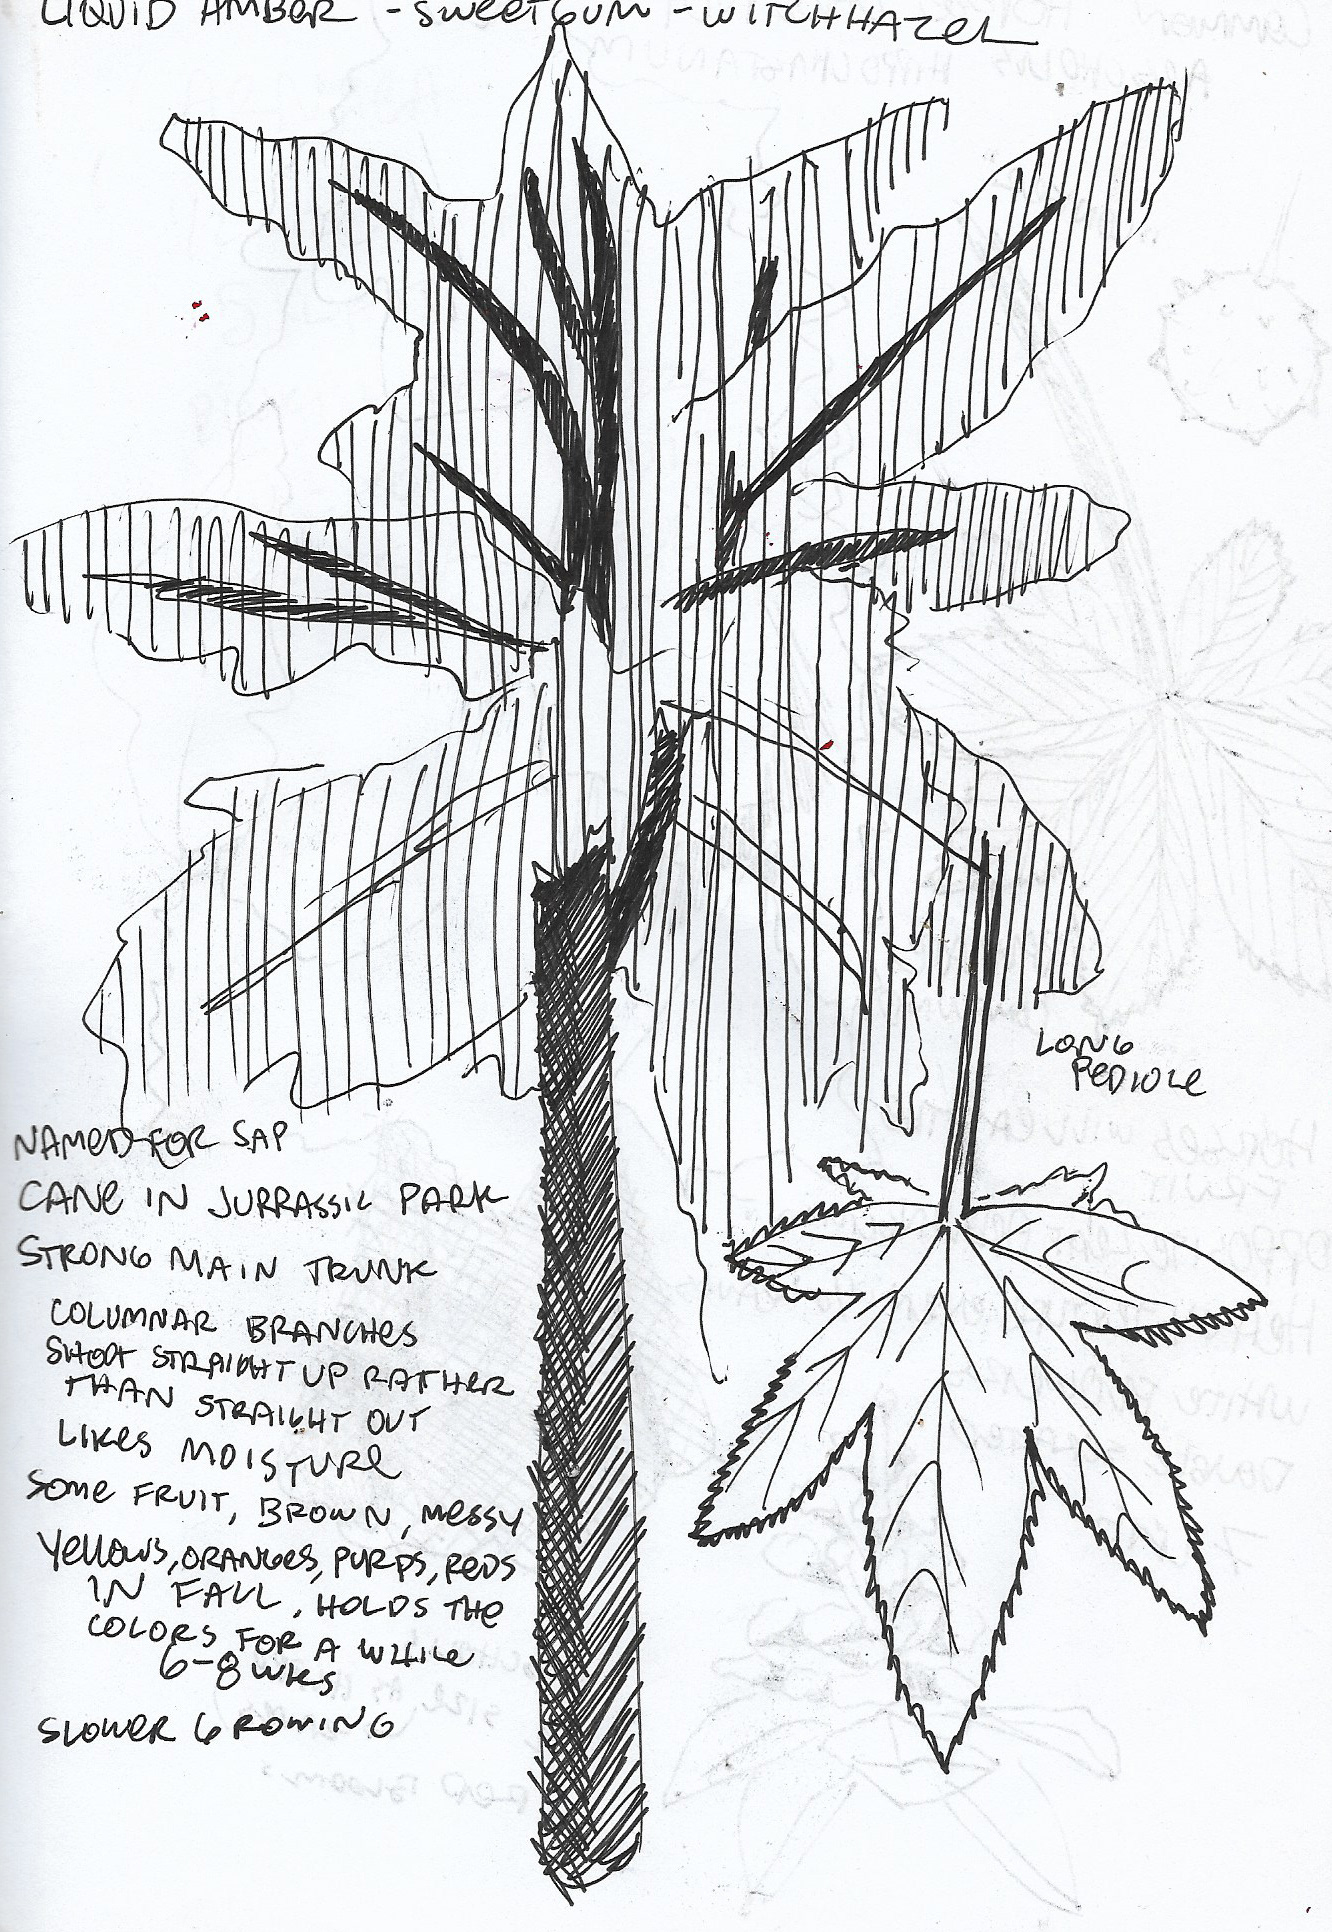 LIQUID AMBER - SWEETGUM - WITCHHAZEL
LONG
PEDIOLE
NAMED FOR SAP
CANE IN JURRASSIC PARK
STRONG MAIN TRUNK
COLUMNAR BRANCHES
SHOOT STRAIGHT UP RATHER
THAN STRAIGHT OUT
LIKES MOISTURE
SOME FRUIT, BROWN, MESSY
YELLOWS, ORANGES, PURPS, REDS
IN FALL, HOLDS THE
COLORS FOR A WHILE
6-8 WKS
SLOWER GROWING